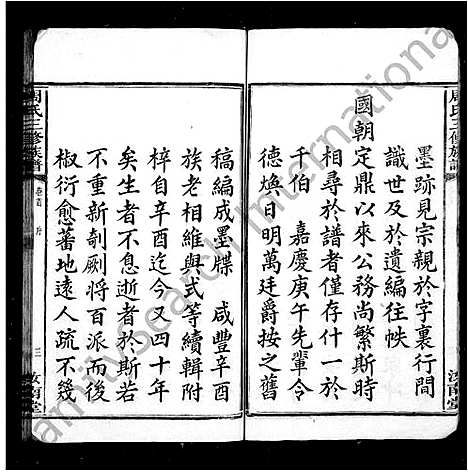 周氏三修族譜
墨跡見宗親於字裏行間
識世及於遺編往帙
國朝定鼎以來公務尚繁斯時
相尋於譜者僅存什一於
千伯 嘉慶庚午先輩令
德煥日明萬廷爵按之舊
汝南堂
稿編成墨牒 咸豐辛酉
族老相維與式等續輯附
梓自辛酉迄今又四十年
矣生者不息逝者於斯若
不重新剞劂將百派而後
椒衍愈蕃地遠人疏不幾
周氏三修族譜
卷首 序
三
汝南堂
FamilySearch International